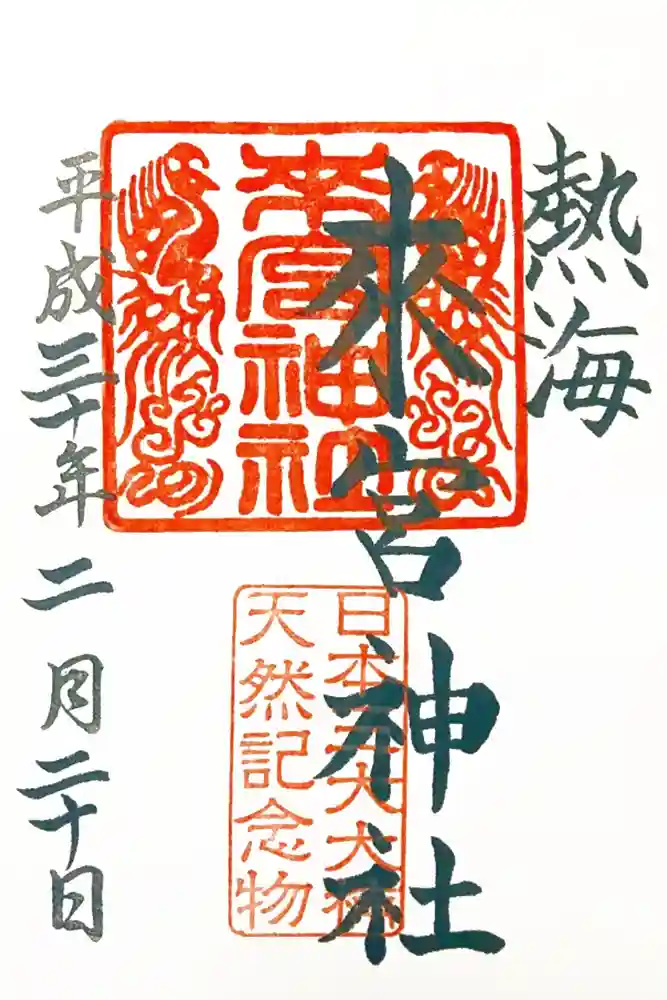 熱海
來宮神社
來宮神社
日本五大大
天然記念物
平成三十年二月二十日